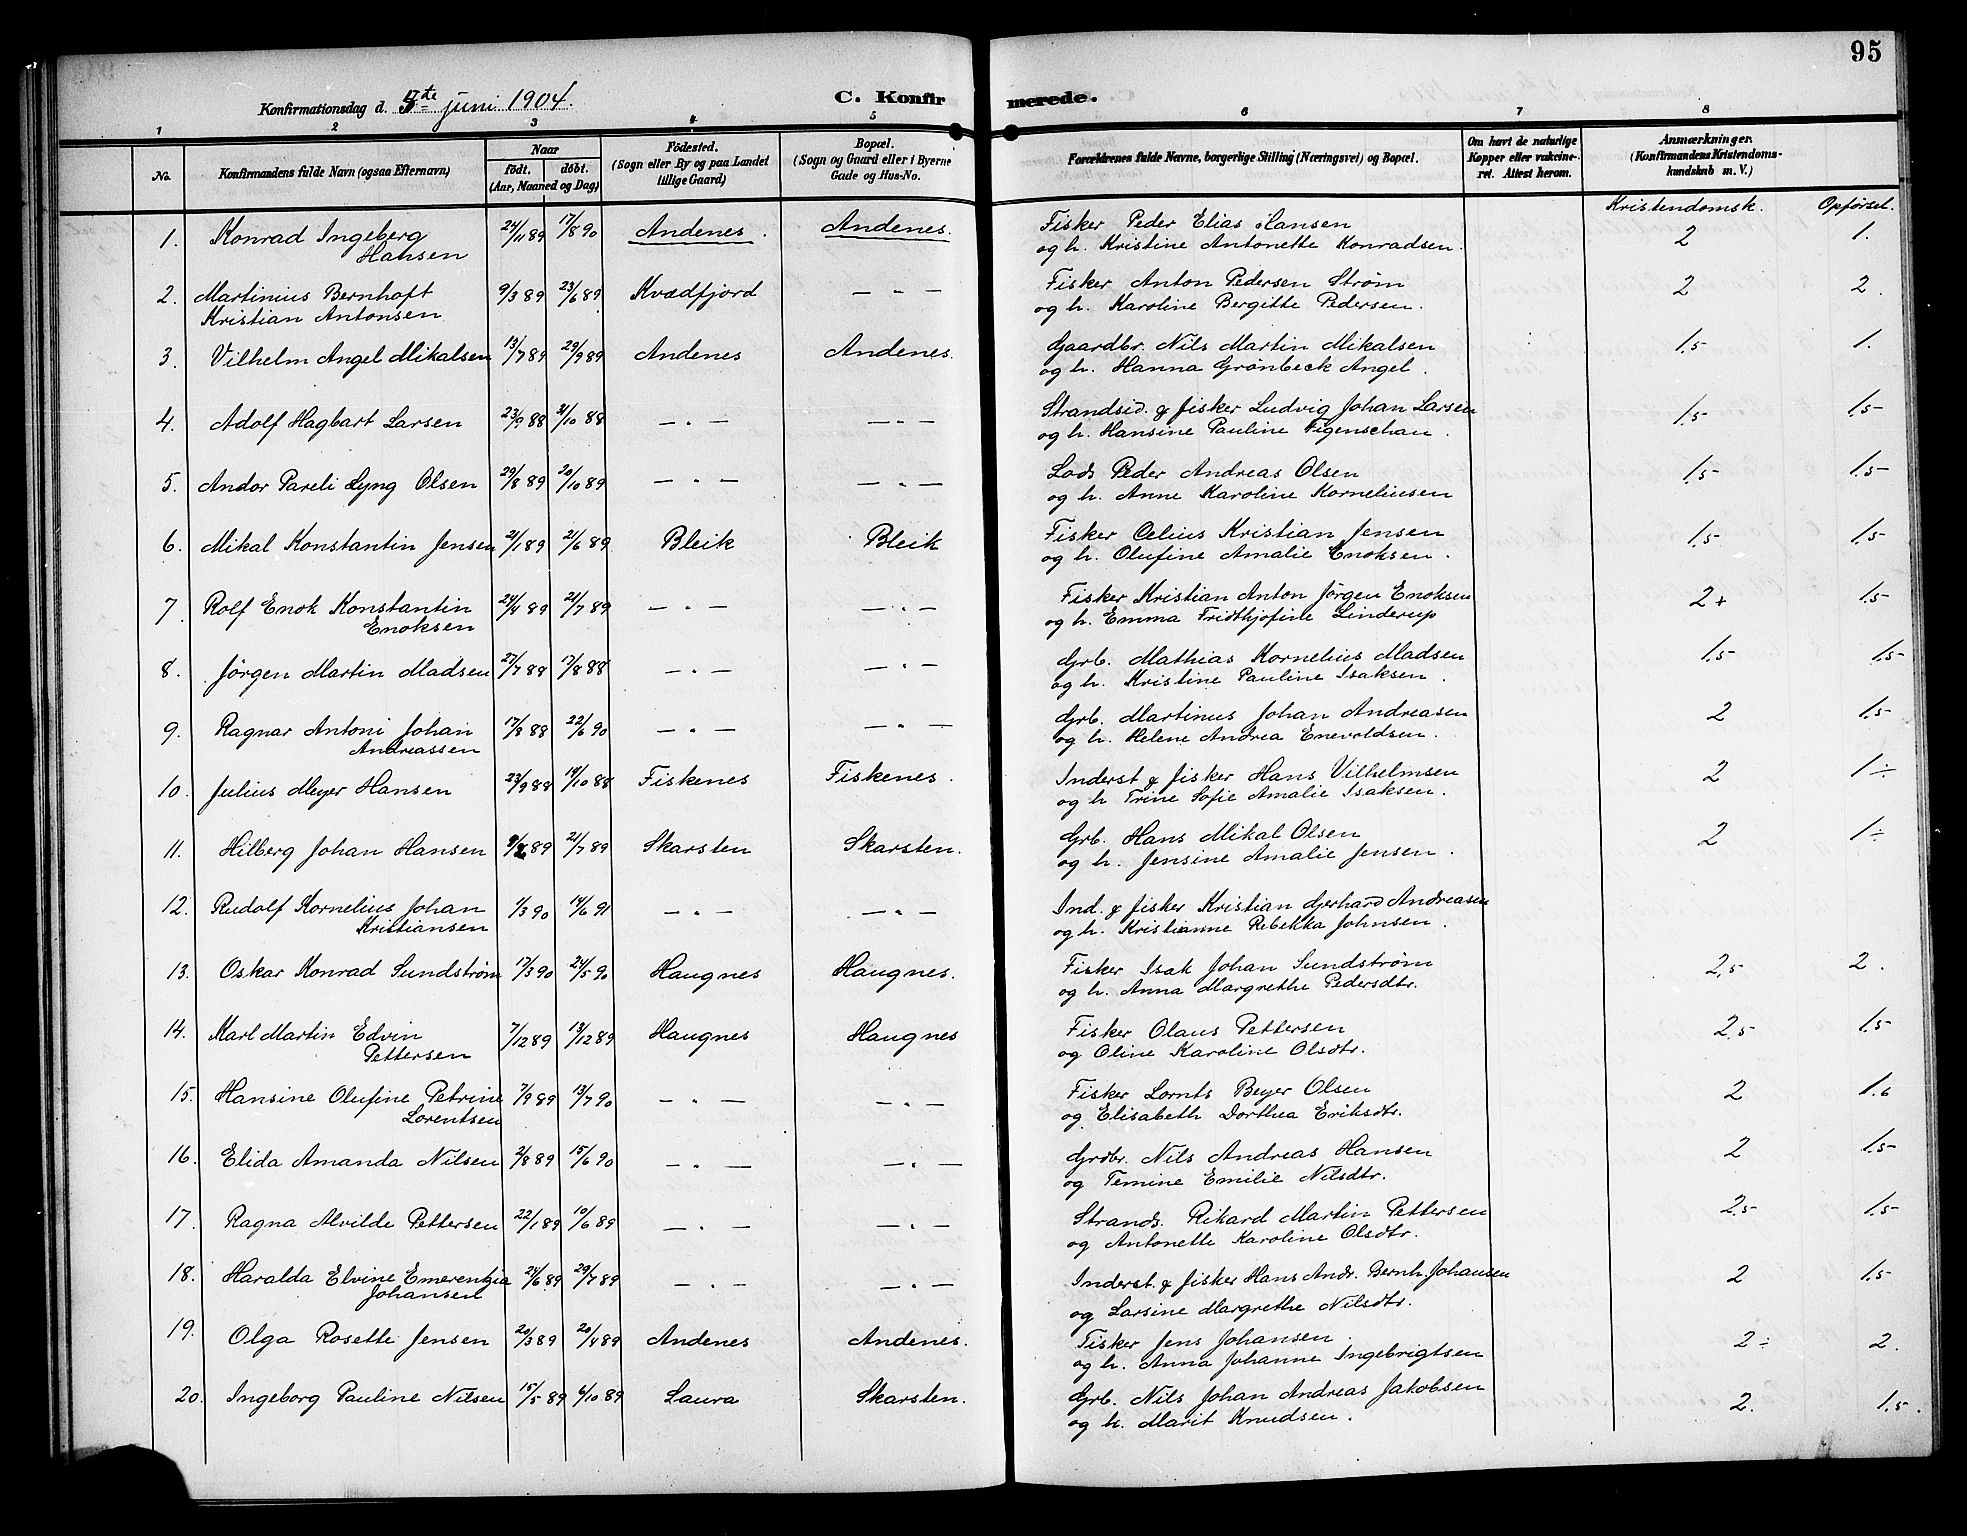 95
Konfirmationsdag d. 5te juni 1904.
C. Konfirmerede.
1 2 3 4 5 6 7 8
No.
Konfirmandens fulde Navn (ogsaa Efternavn)
Naar
født. døbt.
(Aar, Maaned og Dag)
Födested.
(Sogn eller By og paa Landet
tillige Gaard)
Bopæl.
(Sogn og Gaard eller i Byerne
Gade og Hus-No.
Forældrenes fulde Navne, borgerlige Stilling (Næringsvei) og Bopæl.
Om havt de naturlige
Kopper eller vakcine-
ret. Attest herom.
Anmærkninger.
(Konfirmandens Kristendoms-
kundskab m. V.)
Kristendomsk. Opførsel.
1. Konrad Ingeberg 24/11 89 17/8 90 Andenes. Andenes. Fisker Peder Elias Hansen 2 1.
Hansen og h. Kristine Antonette Konradsen.
2. Martinius Bernhoft 9/3 89 23/6 89 Kvædfjord — " — Fisker Anton Pedersen Strøm 2 2.
Kristian Antonsen og h. Karoline Bergitte Pedersen.
3. Vilhelm Angel Mikalsen 13/7 89 29/9 89 Andenes Andenes. Gaardbr. Nils Martin Mikalsen 1.5 1.
og h. Hanna Grønbeck Angel.
4. Adolf Hagbart Larsen 23/9 88 31/10 88 — " — — " — Strandsid. & fisker Ludvig Johan Larsen 1.5 1.5
og h. Hansine Pauline Figenschau.
5. Andor Pareli Lyng Olsen 29/8 89 20/10 89 — " — — " — Lods Peder Andreas Olsen 1.5 1.5
og h. Anne Karoline Korneliusen
6. Mikal Konstantin Jensen 21/1 89 21/6 89 Bleik Bleik Fisker Celius Kristian Jensen 1.5 1.5
og h. Olufine Amalie Enoksen.
7. Rolf Enok Konstantin 24/4 89 21/7 89 — " — — " — Fisker Kristian Anton Jørgen Enoksen 2+ 1.5
Enoksen og h. Emma Fridthjofine Linderup
8. Jørgen Martin Madsen 27/7 88 17/8 88 — " — — " — Grb. Mathias Kornelius Madsen 1.5 1.5
og h. Kristine Pauline Isaksen.
9. Ragnar Antoni Johan 17/8 88 22/6 90 — " — — " — Grb. Martinus Johan Andreasen 2 1.5
Andreassen og h. Helene Andrea Enevoldsen.
10. Julius Meyer Hansen 23/9 88 14/10 88 Fiskenes Fiskenes. Inderst & fisker Hans Vilhelmsen 2 1÷
og h Trine Sofie Amalie Isaksen.
11. Hilberg Johan Hansen 9/2 89 21/7 89 Skarsten Skarsten. Grb. Hans Mikal Olsen 2 1÷
og h. Jensine Amalie Jensen.
12. Rudolf Kornelius Johan 1/3 90 14/6 91 — " — — " — Ind. & fisker Kristian Gerhard Andreasen
Kristiansen og h. Kristianne Rebekka Johnsen.
13. Oskar Konrad Sundstrøm 17/3 90 24/5 90 Haugnes Haugnes. Fisker Isak Johan Sundstrøm 2,5 2.
og h. Anna Margrethe Pedersdtr.
14. Karl Martin Edvin 7/12 89 13/12 89 Haugnes Haugnes Fisker Olaus Pettersen 2,5 1.5
Pettersen og Oline Karoline Olsdtr.
15. Hansine Olufine Petrine 7/9 89 13/7 90 — " — — " — Fisker Lornts Beyer Olsen 2 1.6
Lorentsen og Elisabeth Dorthea Eriksdtr.
16. Elida Amanda Nilsen 2/8 89 15/6 90 — " — — " — Grdbr. Nils Andreas Hansen 2 1.5
og Temine Emilie Nilsdtr.
17. Ragna Alvilde Pettersen 22/1 89 10/6 89 — " — — " — Strands. Rikard Martin Pettersen 2.5 1.5
og Antonette Karoline Olsdtr.
18. Haralda Elvine Emerentzia 24/6 89 29/7 89 — " — — " — Inderst. & fisker Hans Andr. Bernh. Johansen 2 1.5
Johansen og Larsine Margrethe Nilsdtr.
19. Olga Rosette Jensen 20/3 89 20/4 89 Andenes Andenes. Fisker Jens Johansen. 2÷ 2.
og h. Anna Johanne Ingebrigtsen
20. Ingeborg Pauline Nilsen 15/5 89 6/10 89 Saura Skarsten. Grb. Nils Johan Andreas Jakobsen 2. 1.5.
og h. Marit Knudsen.